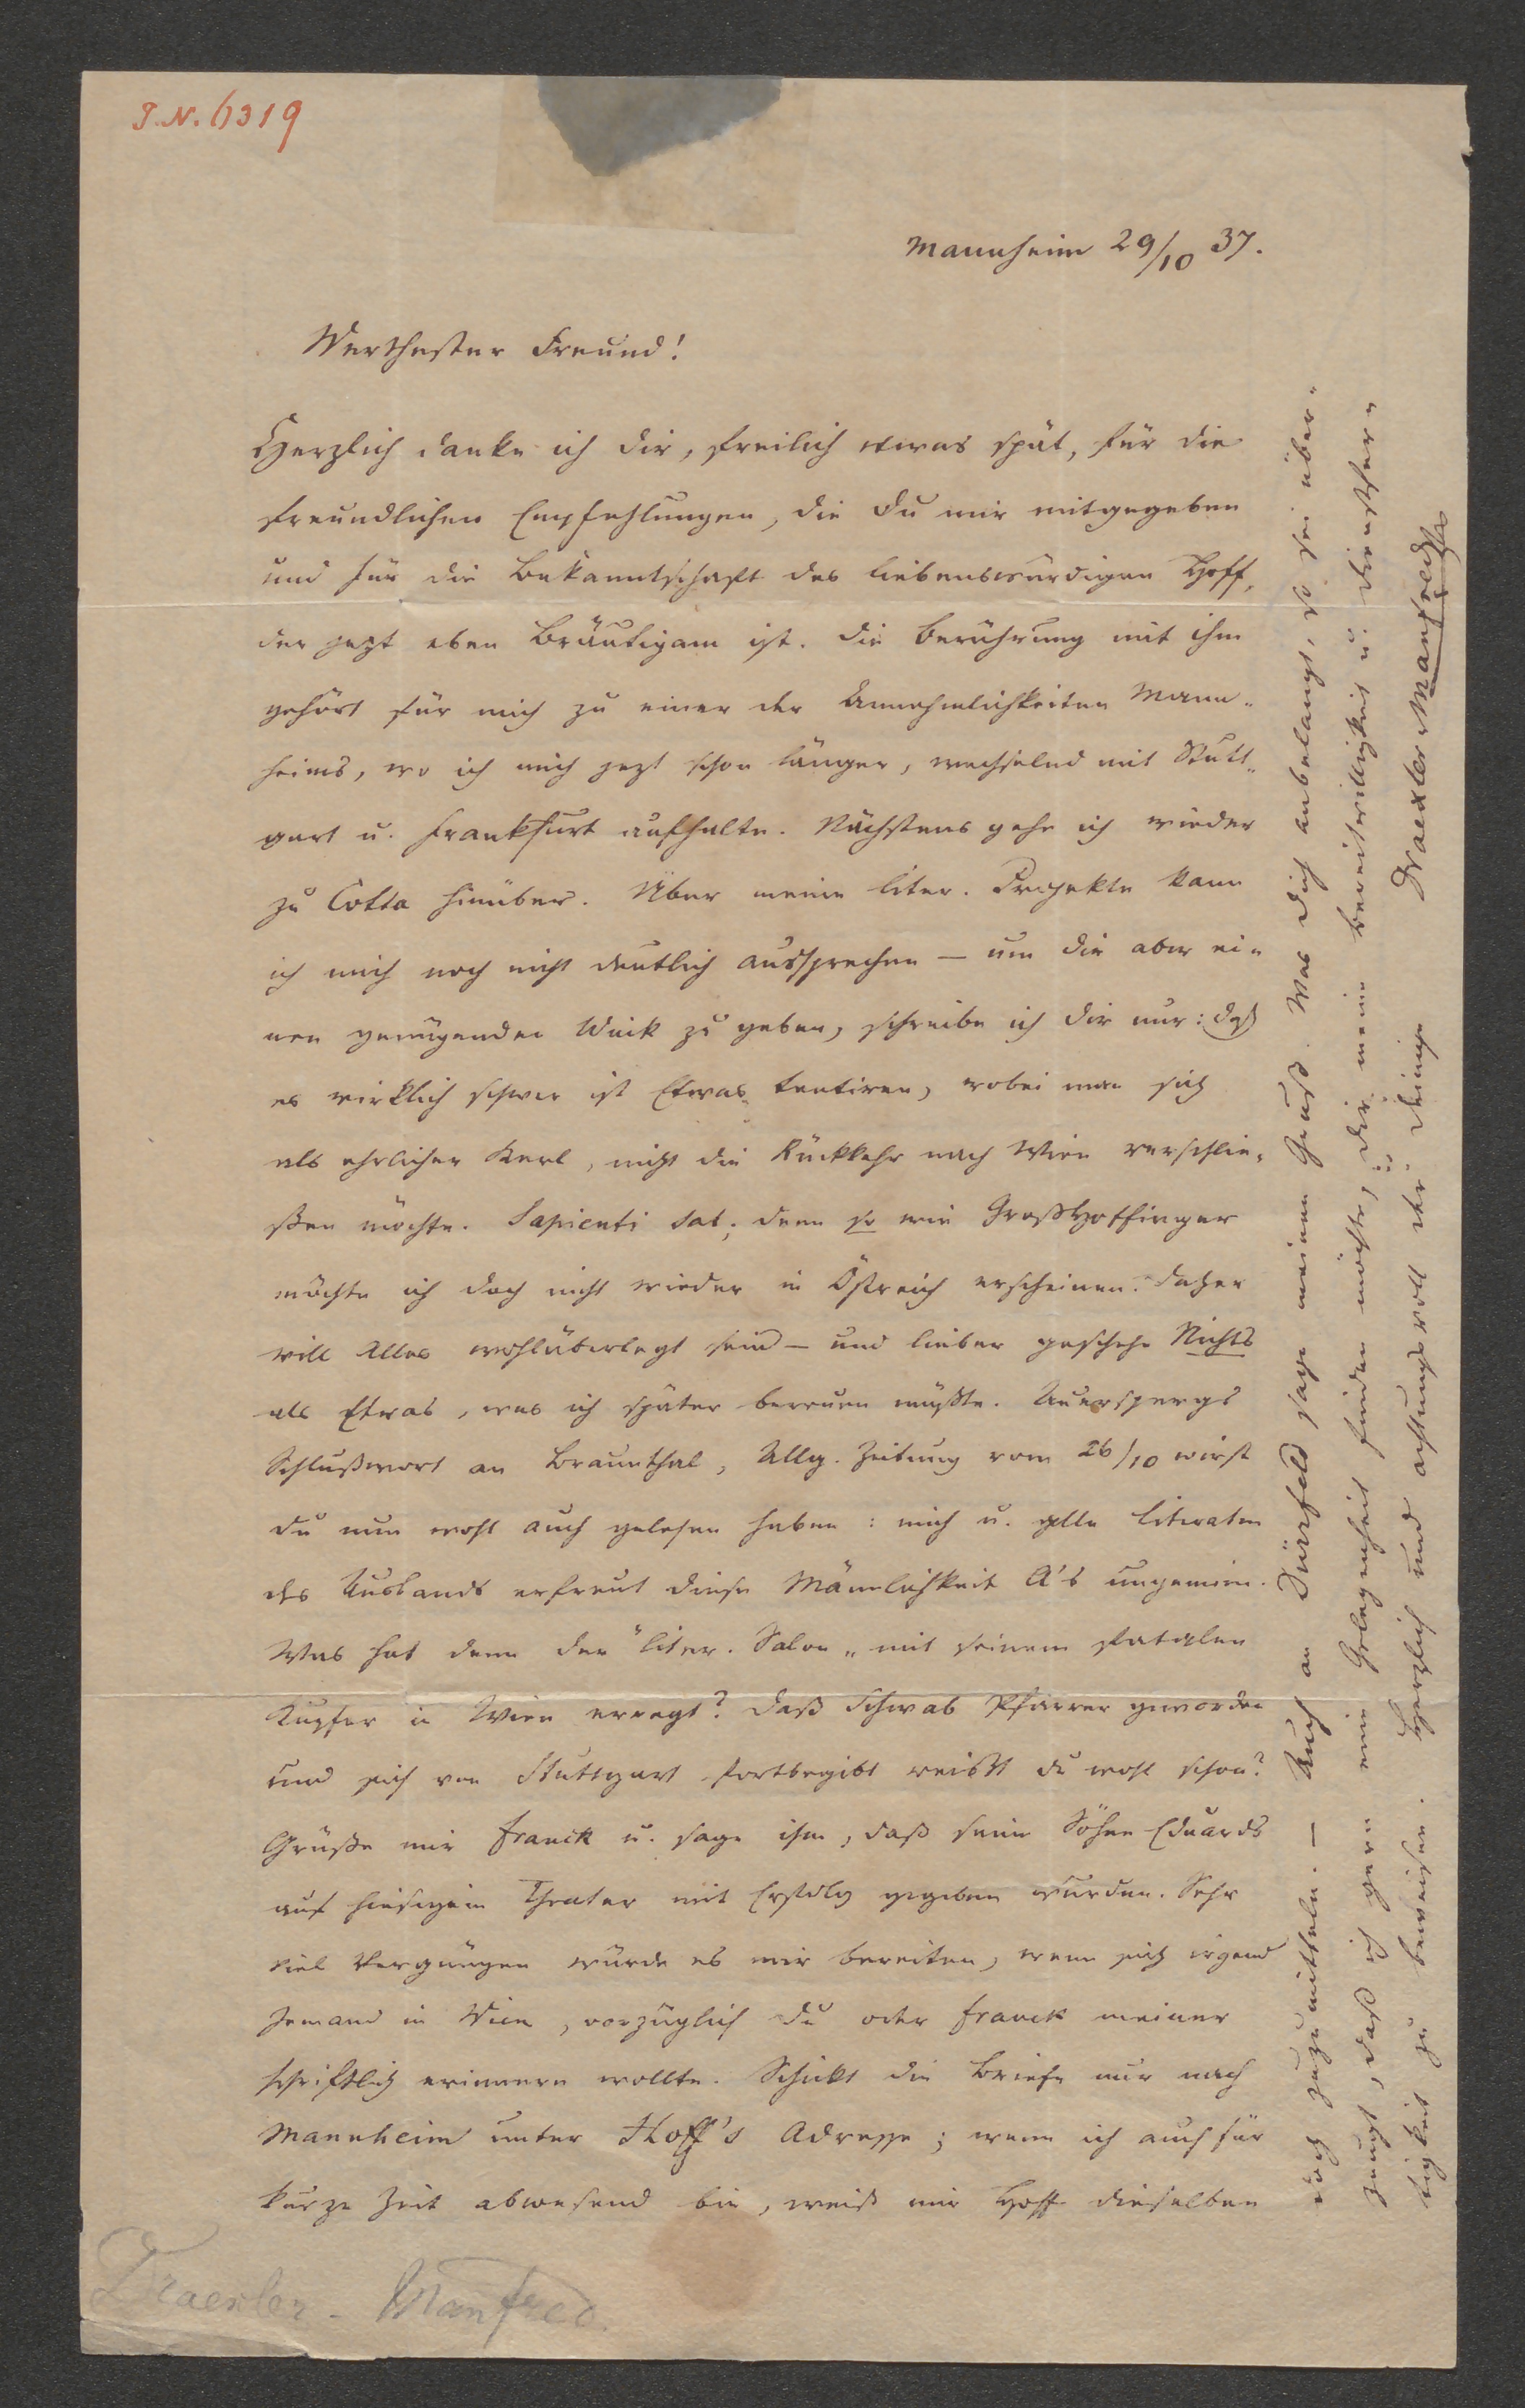 J. N. 6319
Mannheim 29/10 37.
Werthester Freund!
Herzlich danke ich dir, freilich etwas spät, für die
freundlichen Empfehlungen, die du mir mitgegeben
und für die Bekanntschaft des liebenswürdigen Hoff,
der jezt eben Bräutigam ist. Die Berührung mit ihm
gehört für mich zu einer der Annehmlichkeiten Mann-
heims, wo ich mich jezt schon länger, wechselnd mit Stutt-
gart u. Frankfurt aufhalte. Nächstens gehe ich wieder
zu Cotta hinüber. Über meine liter. Projekte kann
ich mich noch nicht deutlich aussprechen – um dir aber ei-
nen genügenden Wink zu geben, schreibe ich dir nur: daß
es wirklich schwer ist Etwas tentiren, wobei man sich
als ehrlicher Kerl, nicht die Rückkehr nach Wien verschlie-
ßen möchte. Sapienti sat; denn so wie Großhoffinger
möchte ich doch nicht wieder in Östreich erscheinen. Daher
will Alles wohlüberlegt sein – und lieber geschehe Nichts
als Etwas, was ich später bereuen müßte. Auerspergs
Schlußwort an Braunthal, Allg. Zeitung vom 26/10 wirst
du nun wohl auch gelesen haben: mich u. alle Literaten
des Auslands erfreut diese Männlichkeit A's ungemein.
Was hat denn der "liter. Salon" mit seinem fatalen
Kupfer in Wien erregt? Daß Schwab Pfarrer geworden
und sich von Stuttgart fortbegibt weißt du wohl schon?
Grüße mir Franck u. sage ihm, daß seine Söhne Eduards
auf hiesigem Theater mit Erfolg gegeben wurden. Sehr
viel Vergnügen würde es mir bereiten, wenn sich irgend
Jemand in Wien, vorzüglich du oder Franck meiner
schriftlich erinnern wollte. Schickt die Briefe nur nach
Mannheim unter Hoff's Adresse; wenn ich auch für
kurze Zeit abwesend bin, weiß mir Hoff dieselben
doch zuzumitteln. – Auch an Dürfeld sage meinen Gruß. Was dich anbelangt, so sei über-
zeugt, daß ich gern eine Gelegenheit finden möchte, dir meine Bereitwilligkeit u. Dienstfer-
tigkeit zu beweisen. Herzlich und achtungsvoll der Deinige
Draexler-Manfred
Draexler-Manfred.